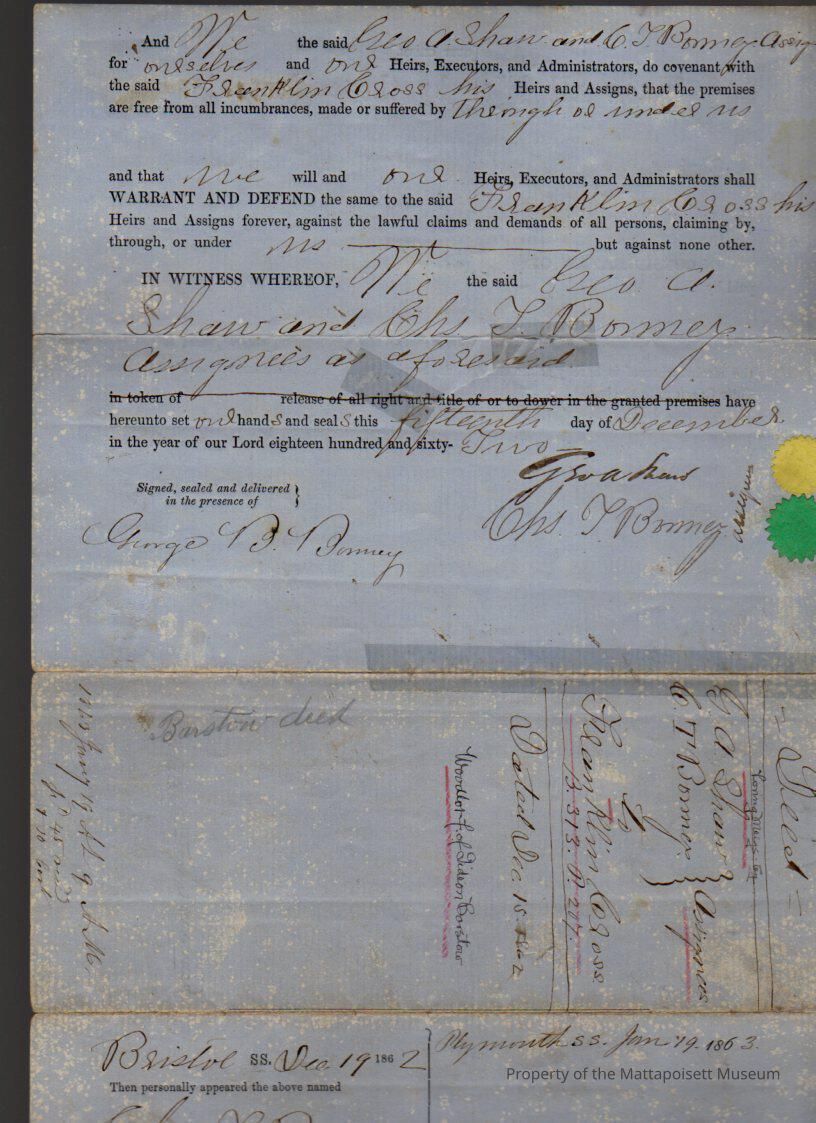 And We the said Geo A. Shaw and C. T. Bonney Assig
for ourselves and our Heirs, Executors, and Administrators, do covenant with
the said Franklin Cross his Heirs and Assigns, that the premises
are free from all incumbrances, made or suffered by through or under us
and that we will and our Heirs, Executors, and Administrators shall
WARRANT AND DEFEND the same to the said Franklin Cross his
Heirs and Assigns forever, against the lawful claims and demands of all persons, claiming by,
through, or under us but against none other.
IN WITNESS WHEREOF, We the said Geo A.
Shaw and Chs. T. Bonney
Assignees as aforesaid
in token of release of all right and title of or to dower in the granted premises have
hereunto set our hands and seals this fifteenth day of December
in the year of our Lord eighteen hundred and sixty-Two
Geo A Shaw
Signed, sealed and delivered }
in the presence of
Chs. T Bonney
assignees
George B. Bonney
Deed
G. A. Shaw
C. T. Bonney } Assignees
to
Franklin Cross
B. 313. P. 207.
Dated Dec 15 1862
Woodlot of Gideon Barstow
Barstow deed
9 A M.
Bristol SS. Dec 19 1862
Plymouth ss. Jan 19. 1863.
Then personally appeared the above named
Property of the Mattapoisett Museum